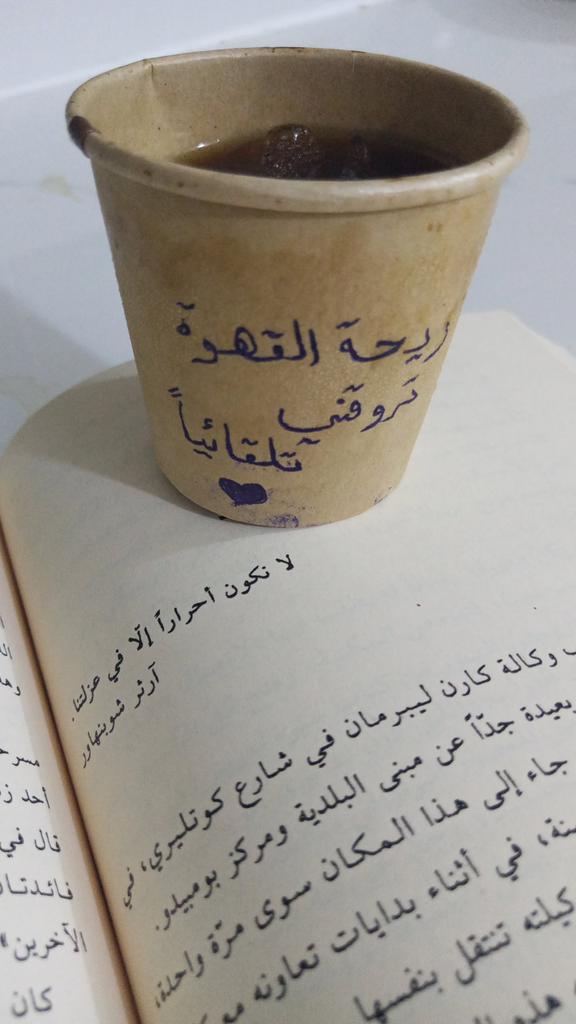 ريحة القهوة
تروقني
تلقائياً
لا نكون أحراراً إلّا في عزلتنا.
آرثر شوبنهاور
وكالة كارن ليبرمان في شارع كوتليري، في
بعيدة جدّاً عن مبنى البلدية ومركز بومبيدو.
جاء إلى هذا المكان سوى مرّة واحدة،
في أثناء بدايات تعاونه
تنتقل بنفسها
هذه
أحد
قال في
الآخرين»
كان